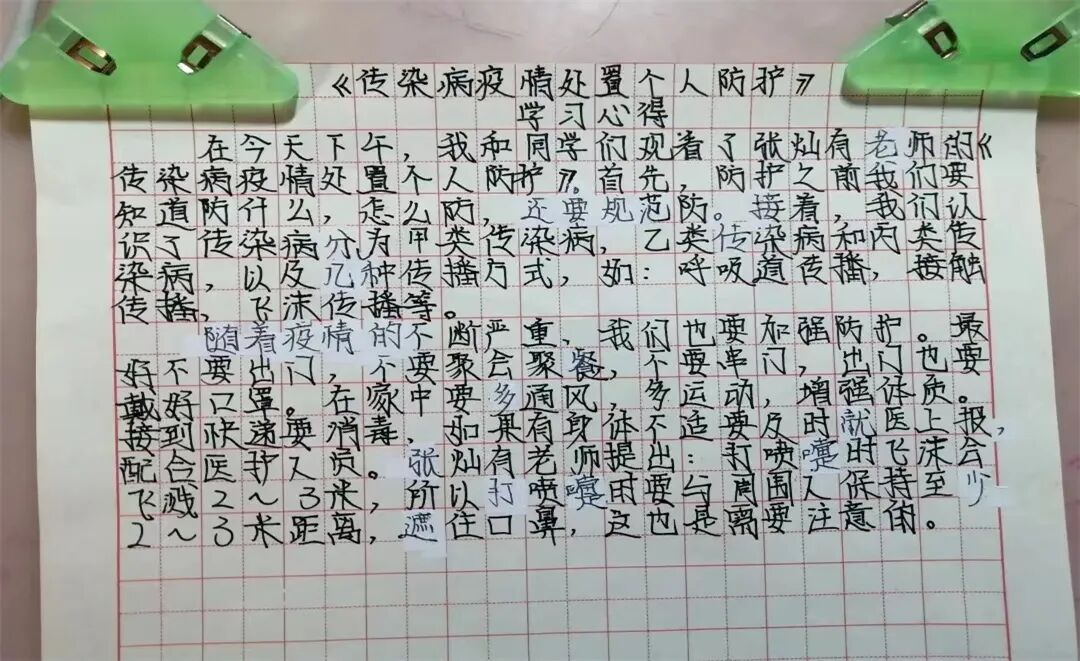 《传染病疫情处置个人防护》
学习心得
在今天下午，我和同学们观看了张灿有老师的《
传染病疫情处置个人防护》。首先，防护之前我们要
知道防什么，怎么防，还要规范防。接着，我们认
识了传染病分为甲类传染病，乙类传染病和丙类传
染病，以及几种传播方式，如：呼吸道传播，接触
传播，飞沫传播等。
随着疫情的不断严重，我们也要加强防护。最
好不要出门，不要聚会聚餐，不要串门，出门也要
戴好口罩。在家中要多通风，多运动，增强体质。
接到快递要消毒，如果有身体不适要及时就医上报，
配合医护人员。张灿有老师提出：打喷嚏时飞沫会
飞溅2～3米，所以打喷嚏时要与周围人保持至少
2～3米距离，遮住口鼻，这也是需要注意的。